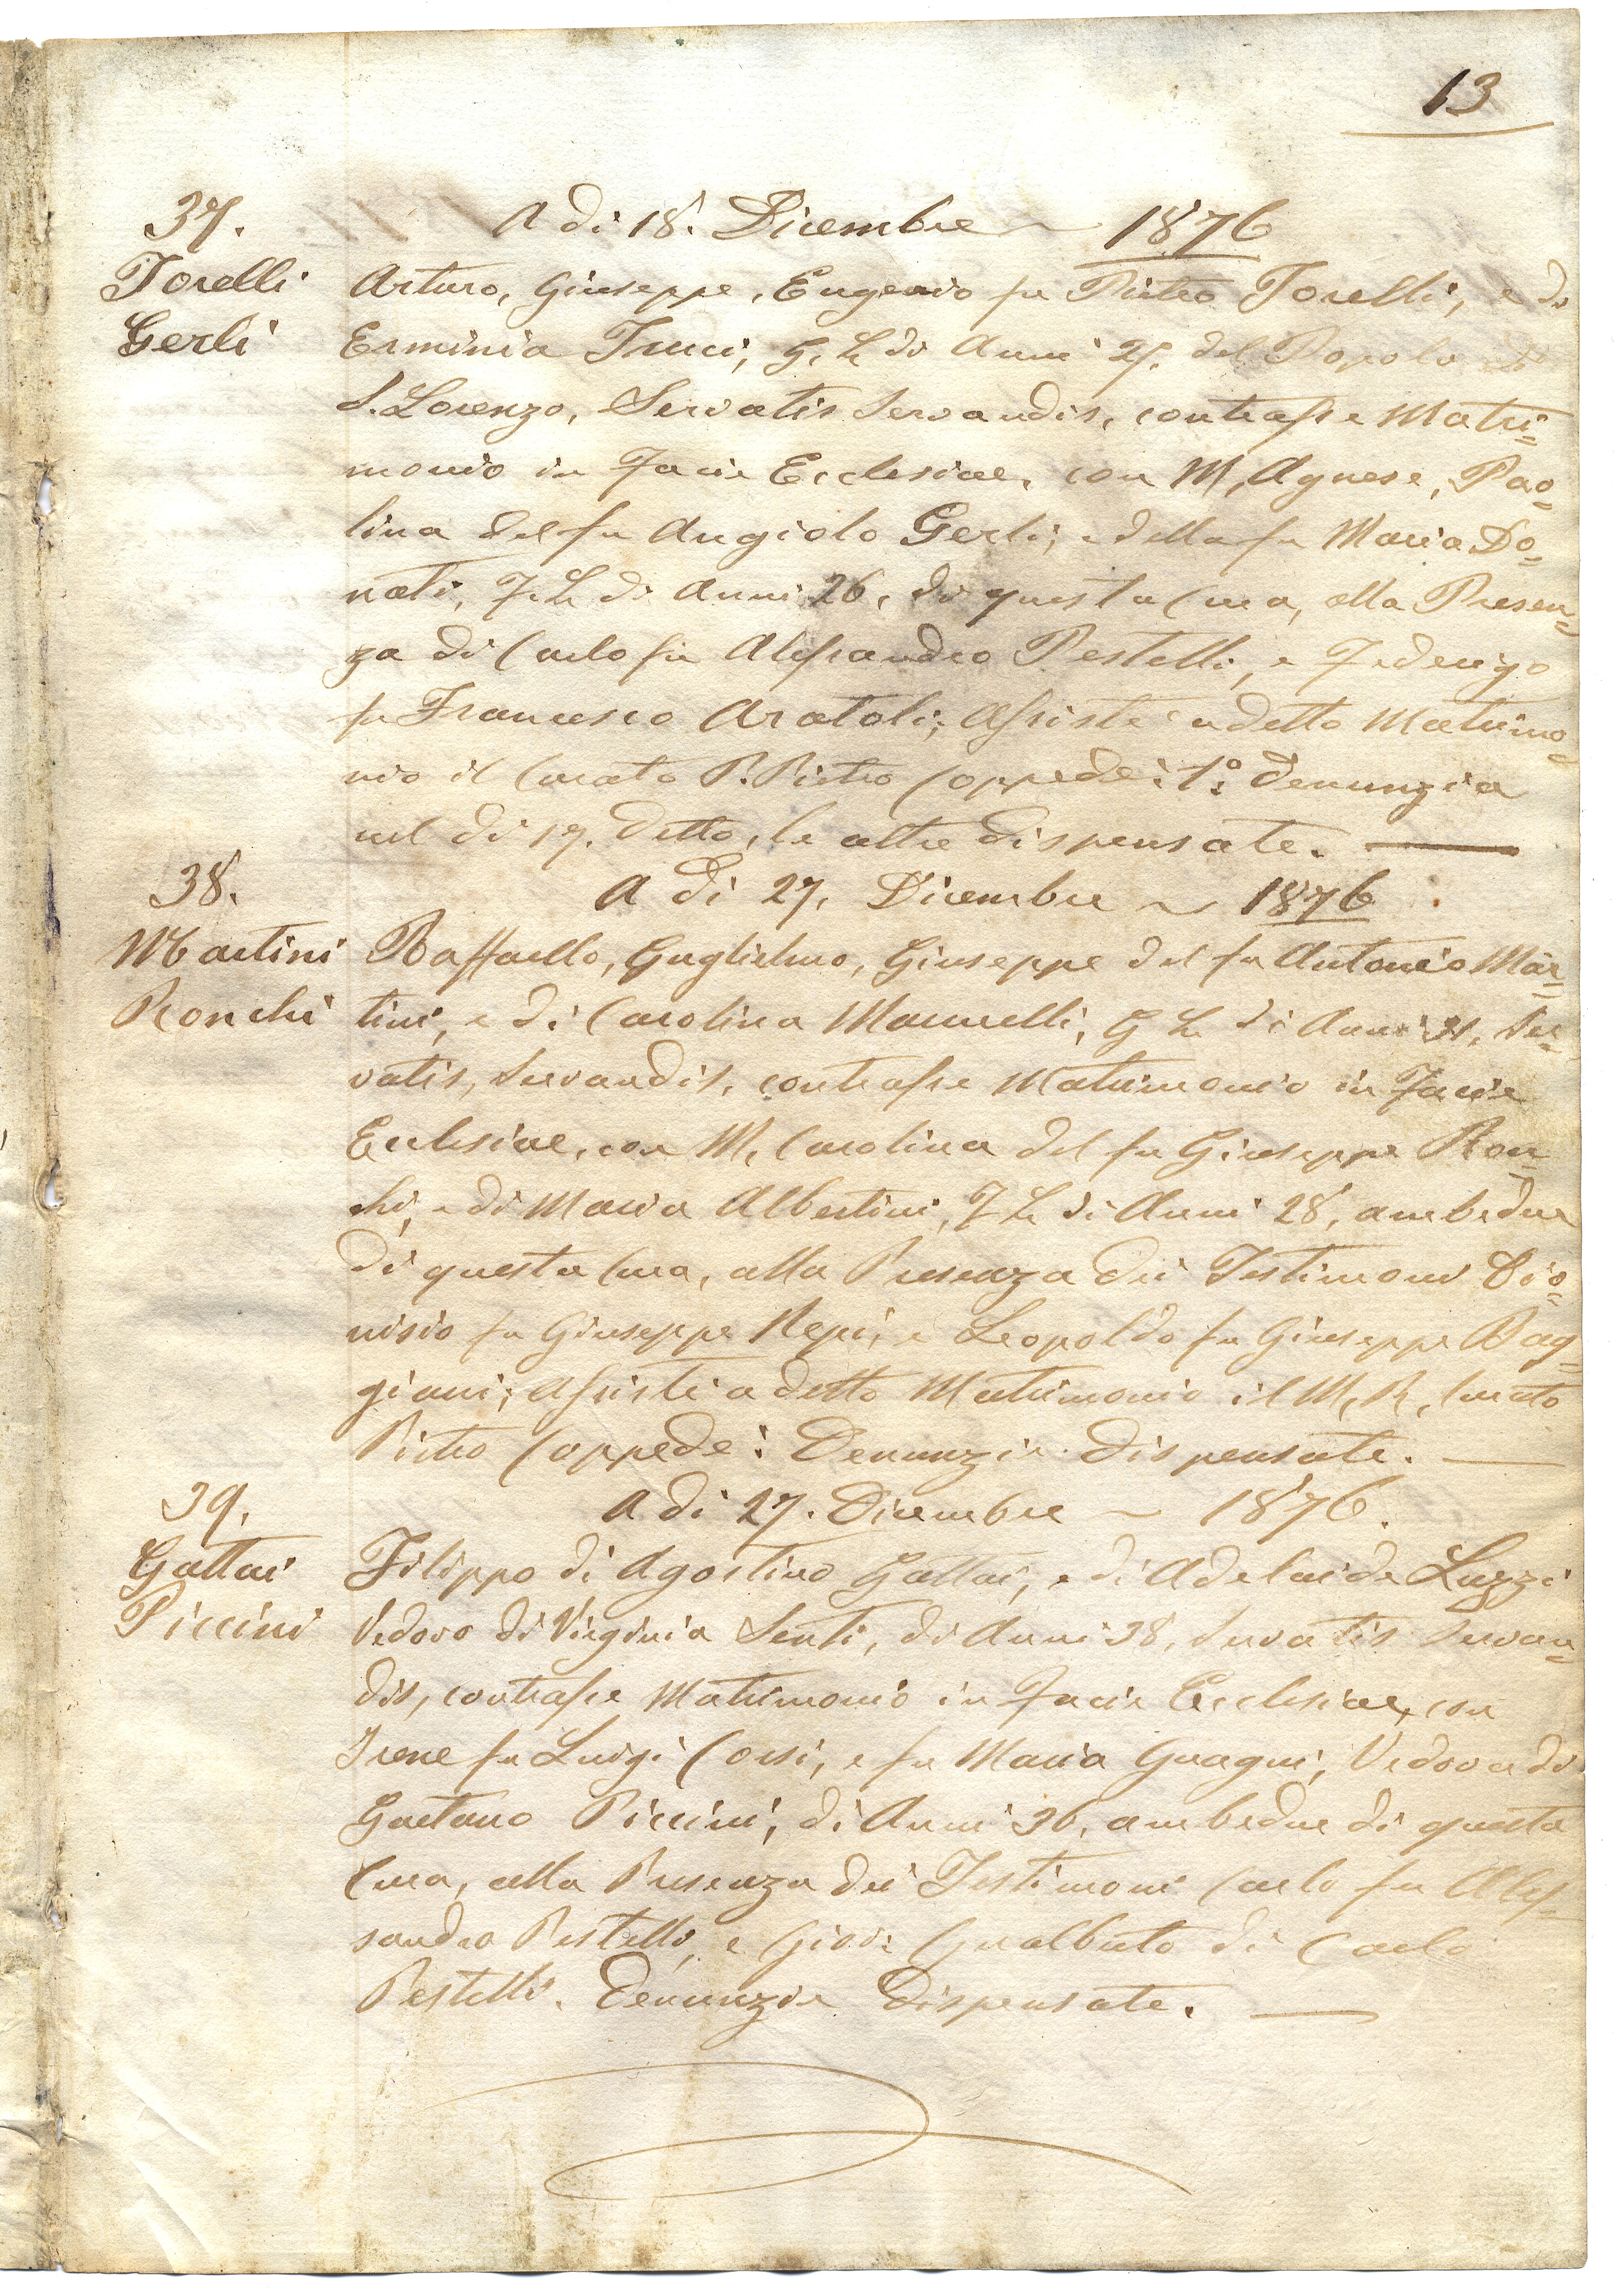 13
37.
A di 18. Dicembre ~ 1876
Torelli
Gerli
Arturo, Giuseppe, Eugenio fu Pietro Torelli, e di
Erminia G. L. di Anni 27. del Popolo di
S. Lorenzo, Servatis Servandis, contrasse Matri=
monio in Facie Ecclesiae, con M, Agnese, Pao=
lina del fu Angiolo Gerli, e della fu Maria Do=
nati, F. L. di Anni 26, di questa Cura, alla Presen=
za di Carlo fu Alessandro Pestelli, e Federigo
fu Francesco Aratoli; Assistè a detto Matrimo=
nio il Curato P. Pietro Coppedè: 1º: Denunzia
nel di 17. detto, le altre dispensate.
38.
A di 27, Dicembre ~ 1876
Martini
Ronchi
Raffaello, Guglielmo, Giuseppe del fu Antonio Mar=
tini, e di Carolina Mannelli, G L di Anni 31, Ser=
vatis, Servandis, contrasse Matrimonio in Facie
Ecclesiae, con M, Carolina del fu Giuseppe Ron=
chi, e di Maria Albertini, F L di Anni 28, ambedue
di questa Cura, alla Presenza dei Testimoni Dio=
nisio fu Giuseppe Nepi, e Leopoldo fu Giuseppe Bag=
giani; Assistè a detto Matrimonio il M, R, Curato
Pietro Coppedè: Denunzie dispensate.
39.
A di 27. Dicembre ~ 1876.
Gattai
Piccini
Filippo di Agostino Gattai, e di Adelaide Luzzi
Vedovo di Virginia Senti, di Anni 38, Servatis Servan=
dis, contrasse Matrimonio in Facie Ecclesiae, con
Irene fu Luigi Corsi, e fu Maria Guagni, Vedova di
Gaetano Piccini, di Anni 36, ambedue di questa
Cura, alla Presenza dei Testimoni Carlo fu Ales=
sandro Pestelli, e Giov: Gualberto di Carlo
Pestelli. Denunzie Dispensate.